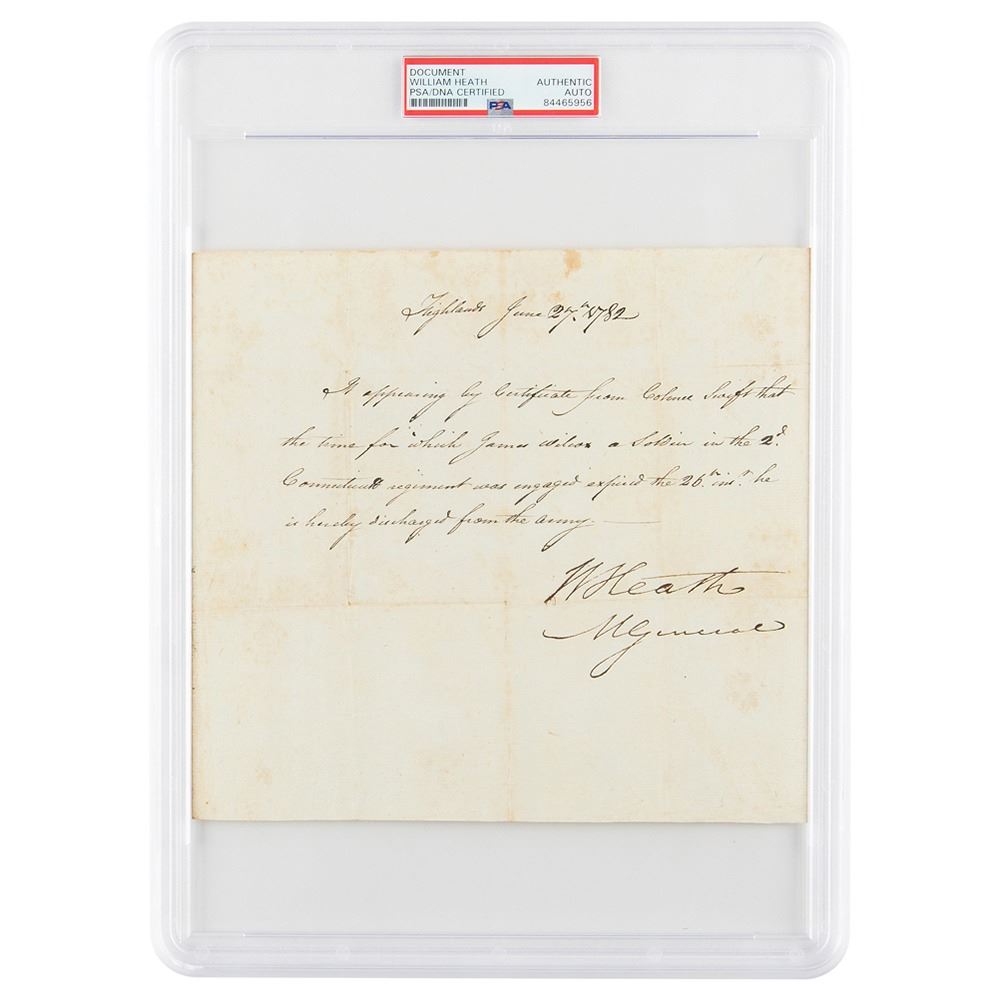 DOCUMENT
WILLIAM HEATH AUTHENTIC
PSA/DNA CERTIFIED AUTO
PSA 84465956
Highlands June 27.th 1782
It appearing by Certificate from Colonel Swift that
the time for which James Wilcox a Soldier in the 2.d
Connecticutt regiment was engaged expired the 26.th ins.t he
is hereby discharged from the army.
W Heath
M General